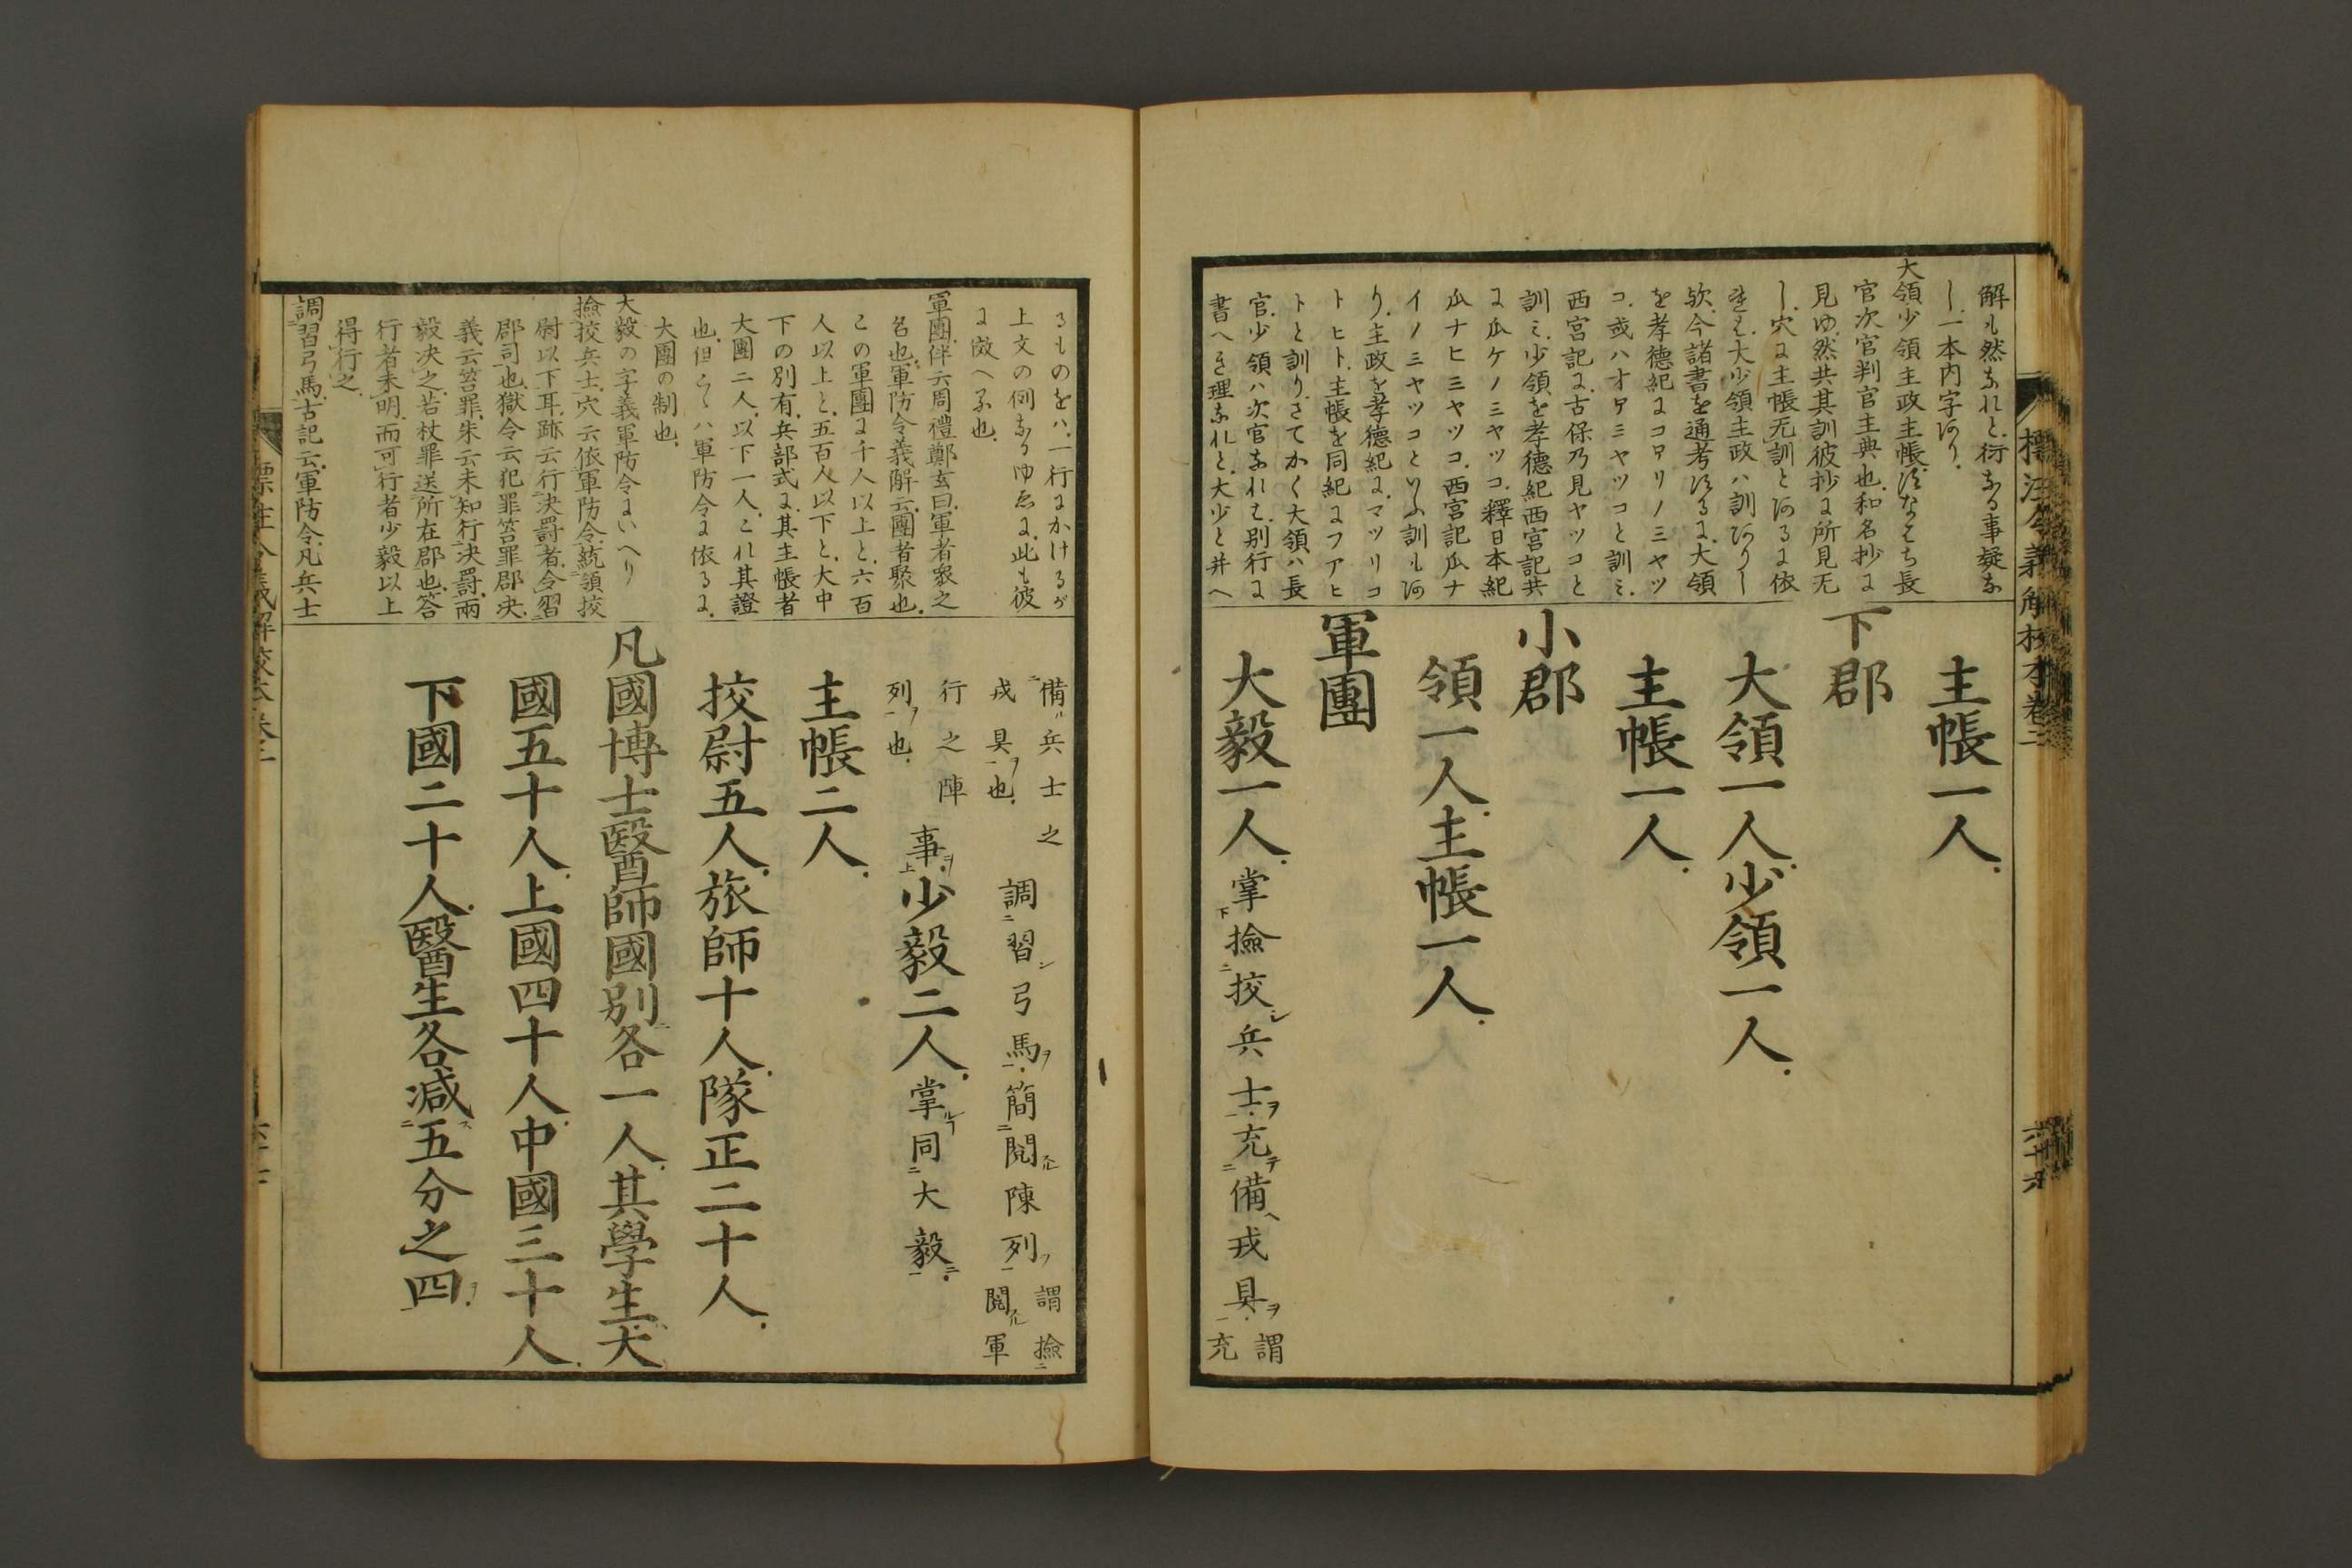 解も然なれと衍なる事疑な
し一本内字あり
大領少領主政主帳すなはち長
官次官判官主典也和名抄に
見ゆ然共其訓彼抄に所見无
し穴に主帳无訓とあるに依
れは大少領主政ハ訓ありし
歟今諸書を通考するに大領
を孝德紀にコホリノミヤツ
コ或ハオホミヤツコと訓ミ
西宮記に古保乃見ヤツコと
訓ミ少領を孝德紀西宮記共
に瓜ケノミヤツコ釋日本紀
瓜ナヒミヤツコ西宮記瓜ナ
イノミヤツコといふ訓もあ
り主政を孝德紀にマツリコ
トヒト主帳を同紀にフアヒ
トと訓りさてかく大領ハ長
官少領ハ次官なれは別行に
書へき理なれと大少と并へ
主帳一人
下郡
大領一人少領一人
主帳一人
小郡
領一人主帳一人
軍團
大毅一人掌撿挍兵士充備戎具謂充
標注令義解校本卷二
るものをハ一行にかけるが
上文の例なるゆゑに此も彼
に效へる也
軍團伴云周禮鄭玄曰軍者衆之
名也軍防令義解云團者聚也
この軍團に千人以上と六百
人以上と五百人以下と大中
下の別有兵部式に其主帳者
大團二人以下一人これ其證
也但こゝハ軍防令に依るに
大團の制也
大毅の字義軍防令にいへり
撿挍兵士穴云依軍防令統領挍
尉以下耳跡云行決罰者令習
郡司也獄令云犯罪笞罪郡決
義云笞罪朱云未知行決罰兩
毅決之若杖罪送所在郡也答
行者未明而可行者少毅以上
得行之
調習弓馬古記云軍防令凡兵士
備兵士之戎具也調習弓馬簡閲陳列謂撿閲軍
行之陣列也事少毅二人掌同大毅
主帳二人
挍尉五人旅師十人隊正二十人
凡國博士醫師國別各一人其學生大
國五十人上國四十人中國三十人
下國二十人醫生各減五分之四
標注令義解校本卷二